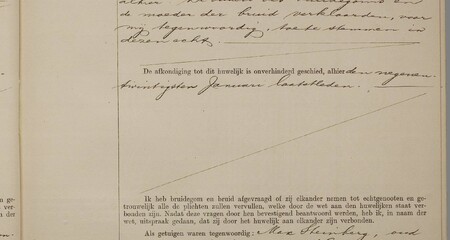 de moeder der bruid verklaarden, voor
mij tegenwoordig, toe te stemmen in
dezen echt.
De afkondiging tot dit huwelijk is onverhinderd geschied, alhier den negenen
twintigsten Januari laatstleden.
Ik heb bruidegom en bruid afgevraagd of zij elkander nemen tot echtgenooten en ge-
trouwelijk alle de plichten zullen vervullen, welke door de wet aan den huwelijken staat ver-
bonden zijn. Nadat deze vragen door hen bevestigend beantwoord werden, heb ik, in naam der
wet, uitspraak gedaan, dat zij door het huwelijk aan elkander zijn verbonden.
Als getuigen waren tegenwoordig: Max Sternberg, oud
en ge-
t ver-
m der